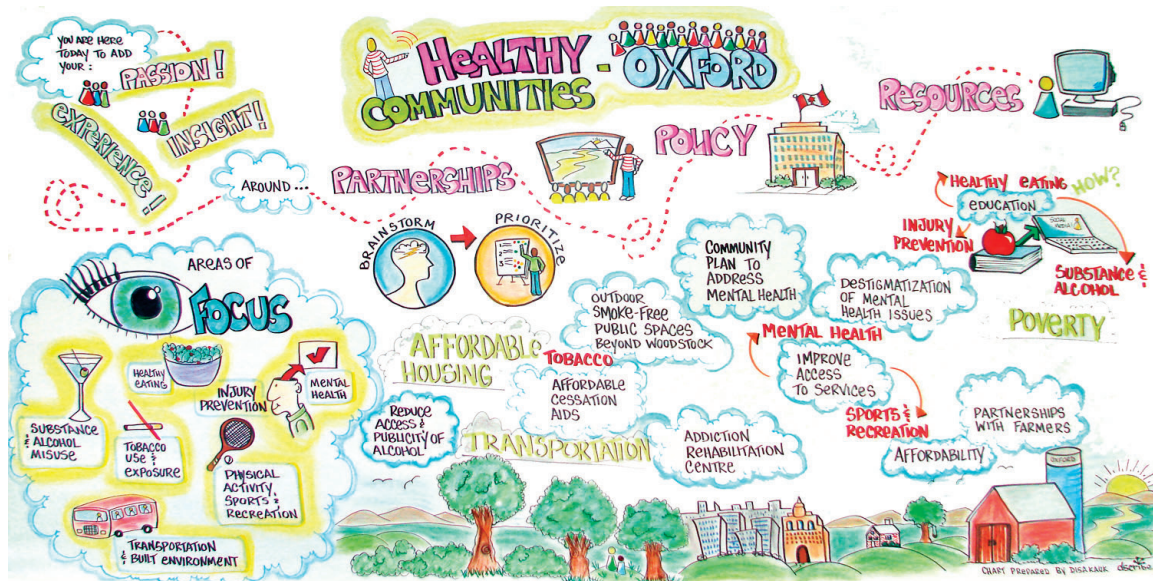 YOU ARE HERE
TODAY TO ADD
YOUR:
PASSION!
INSIGHT!
EXPERIENCE!
HEALTHY
COMMUNITIES - OXFORD
AROUND...
PARTNERSHIPS
POLICY
RESOURCES
BRAINSTORM
PRIORITIZE
AREAS OF
FOCUS
HEALTHY
EATING
INJURY
PREVENTION
MENTAL
HEALTH
SUBSTANCE
& ALCOHOL
MISUSE
TOBACCO
USE &
EXPOSURE
PHYSICAL
ACTIVITY,
SPORTS &
RECREATION
TRANSPORTATION
& BUILT ENVIRONMENT
AFFORDABLE
HOUSING
OUTDOOR
SMOKE-FREE
PUBLIC SPACES
BEYOND WOODSTOCK
TOBACCO
AFFORDABLE
CESSATION
AIDS
REDUCE
ACCESS &
PUBLICITY OF
ALCOHOL
TRANSPORTATION
ADDICTION
REHABILITATION
CENTRE
COMMUNITY
PLAN TO
ADDRESS
MENTAL HEALTH
DESTIGMATIZATION
OF MENTAL
HEALTH ISSUES
MENTAL HEALTH
IMPROVE
ACCESS
TO SERVICES
SPORTS &
RECREATION
AFFORDABILITY
HEALTHY EATING
HOW?
EDUCATION
INJURY
PREVENTION
SOCIAL
MEDIA
SUBSTANCE &
ALCOHOL
POVERTY
PARTNERSHIPS
WITH FARMERS
OXFORD
CHART PREPARED BY DISA KAUK